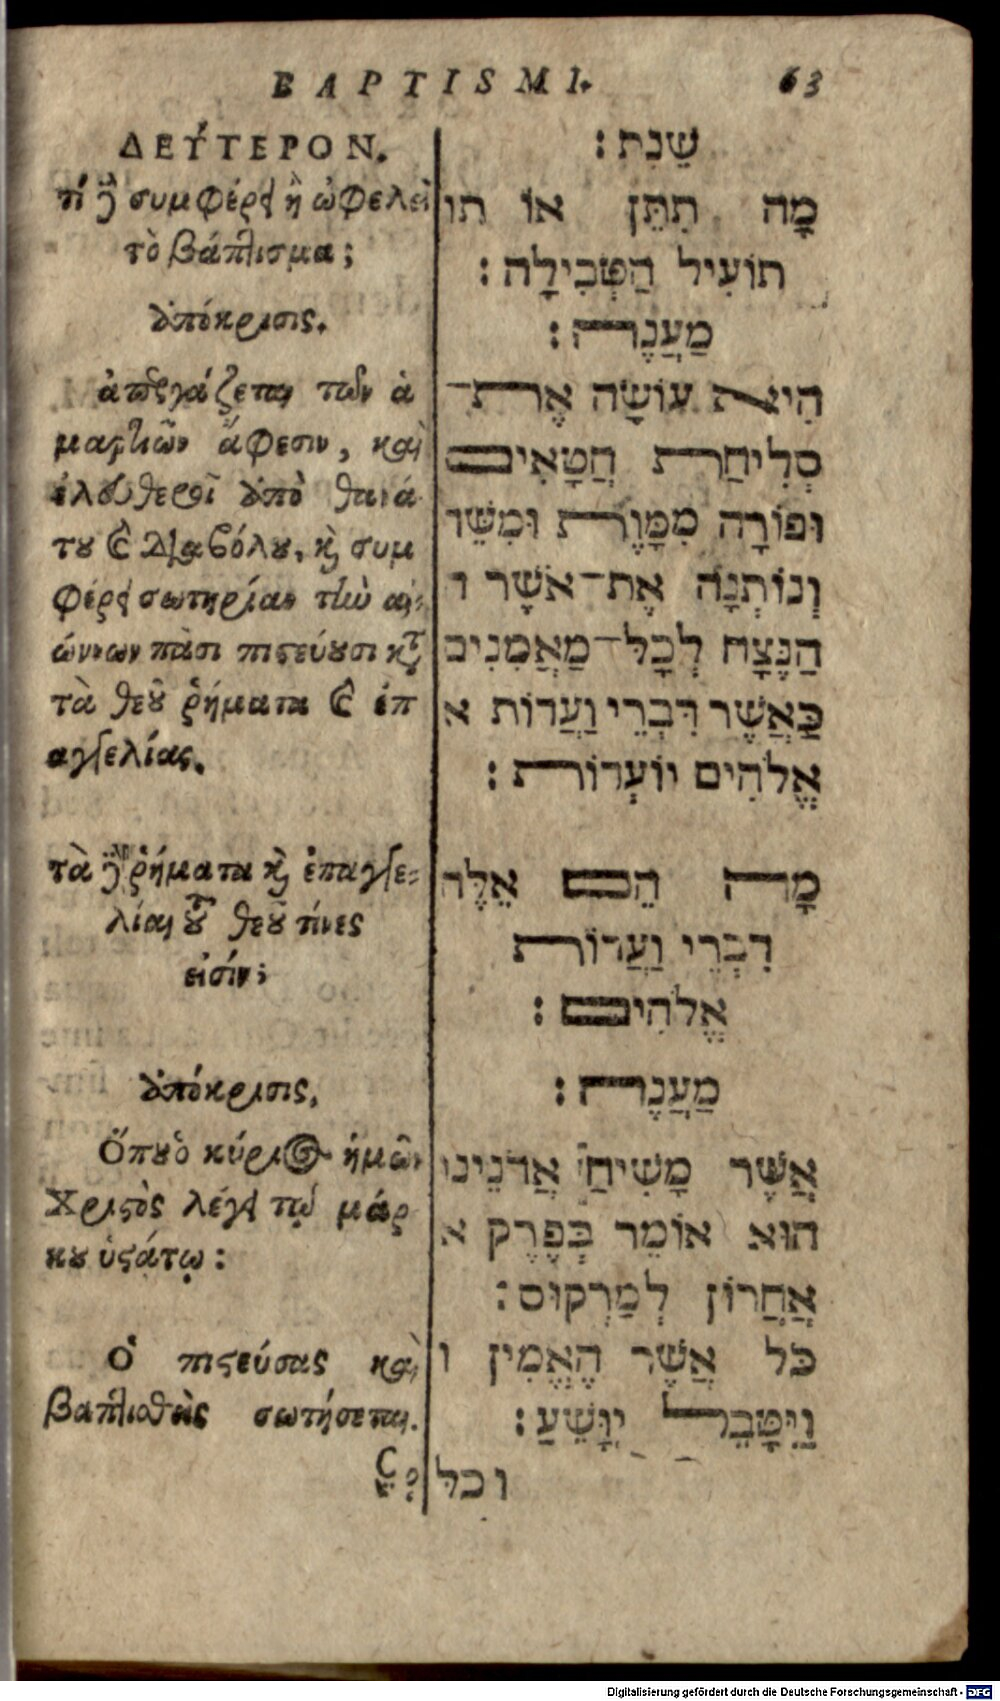 BAPTISMI. 63
ΔΕΎΤΕΡΟΝ.
τί δὲ συμφέρει ἢ ὠφελεῖ
τὸ βάπτισμα;
ἀπόκρισις.
ἀπεργάζεται τῶν ἁ
μαρτιῶν ἄφεσιν, καὶ
ἐλευθεροῖ ἀπὸ θανά
του καὶ διαβόλου, καὶ συμ
φέρει σωτηρίαν τὴν αἰ-
ώνιον πᾶσι πιστεύουσι κατὰ
τὰ θεοῦ ῥήματα καὶ ἐπ
αγγελίας.
τὰ δὲ ῥήματα καὶ ἐπαγγε-
λίαι τοῦ θεοῦ τίνες
εἰσίν;
ἀπόκρισις.
Ὅπου ὁ κύριος ἡμῶν
Χριστὸς λέγει τῷ μάρ
κου ὑστάτῳ:
Ὁ πιστεύσας καὶ
βαπτισθεὶς σωτήσεται.
שֵׁנִת:
מָה תִתֵּן אוֹ תו
תוֹעִיל הַטְּבִילָה:
מַעֲנֶה:
הִיא עוֹשָׂה אֶת־
סְלִיחַת חֲטָאִים
וּפוֹרָה מִמָּוֶת וּמִשֵּׁד
וְנוֹתְנָה אֶת־אֹשֶׁר ו
הַנֶּצָּח לְכָל־מַאֲמִנִים
כַּאֲשֶׁר דִּבְרֵי וַעֲדוֹת א
אֱלֹהִים יוֹעְדוֹת:
מָה הֵם אֵלֶּה
דִּבְרֵי וַעֲדוֹת
אֱלֹהִים:
מַעֲנֶה:
אֲשֶׁר מָשִׁיחַ אֲדֹנֵינוּ
הוּא אוֹמֵר בְּפֶרֶק א
אַחֲרוֹן לְמַרְקוּס:
כֹּל אֲשֶׁר הֶאֱמִין ו
וַיִּטָּבֵל יִוָּשֵׁעַ:
וכל